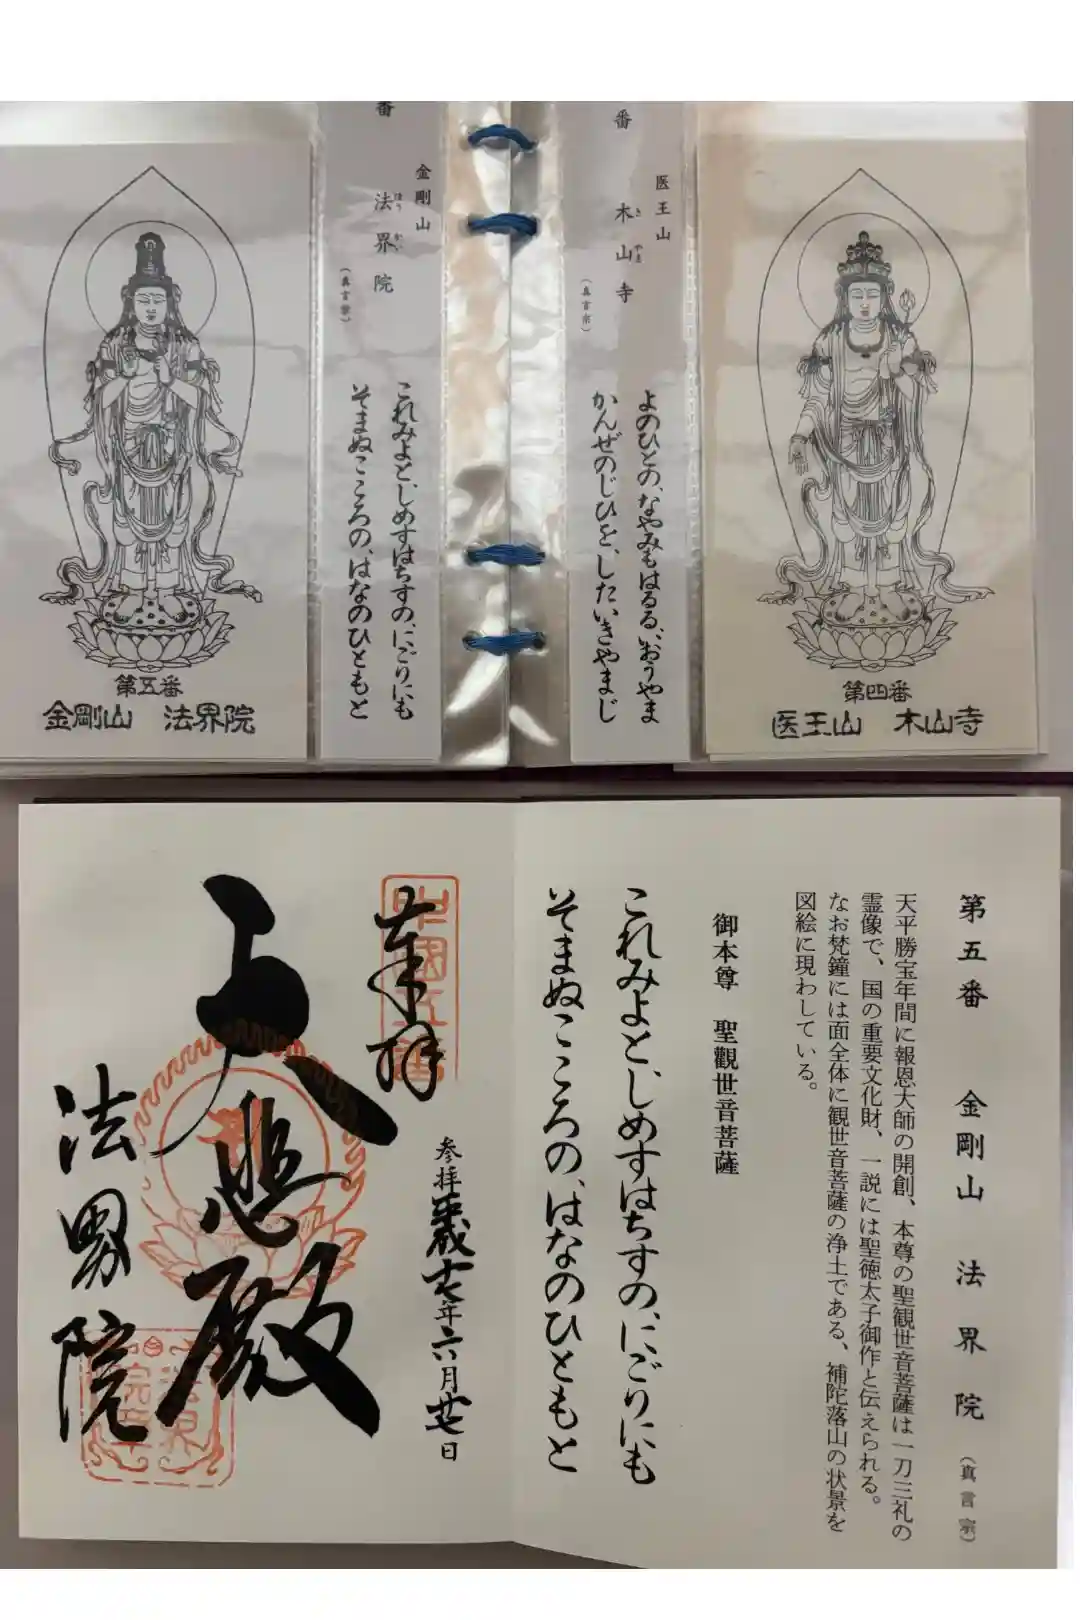 番
医王山
木山寺
きやま
(真言宗)
よのひとの、なやみもはるる、いおうやま
かんぜのじひを、したいきやまじ
第四番
医王山 木山寺
番
金剛山
法界院
ほうかい
(真言宗)
これみよと、しめすはちすの、にごりにも
そまぬこころの、はなのひともと
第五番
金剛山 法界院
第五番 金剛山 法界院 (真言宗)
天平勝宝年間に報恩大師の開創、本尊の聖観世音菩薩は一刀三礼の
霊像で、国の重要文化財、一説には聖徳太子御作と伝えられる。
なお梵鐘には面全体に観世音菩薩の浄土である、補陀落山の状景を
図絵に現わしている。
御本尊 聖觀世音菩薩
これみよと、しめすはちすの、にごりにも
そまぬこころの、はなのひともと
奉拝
参拝 歳七年六月廿日
大悲殿
法界院